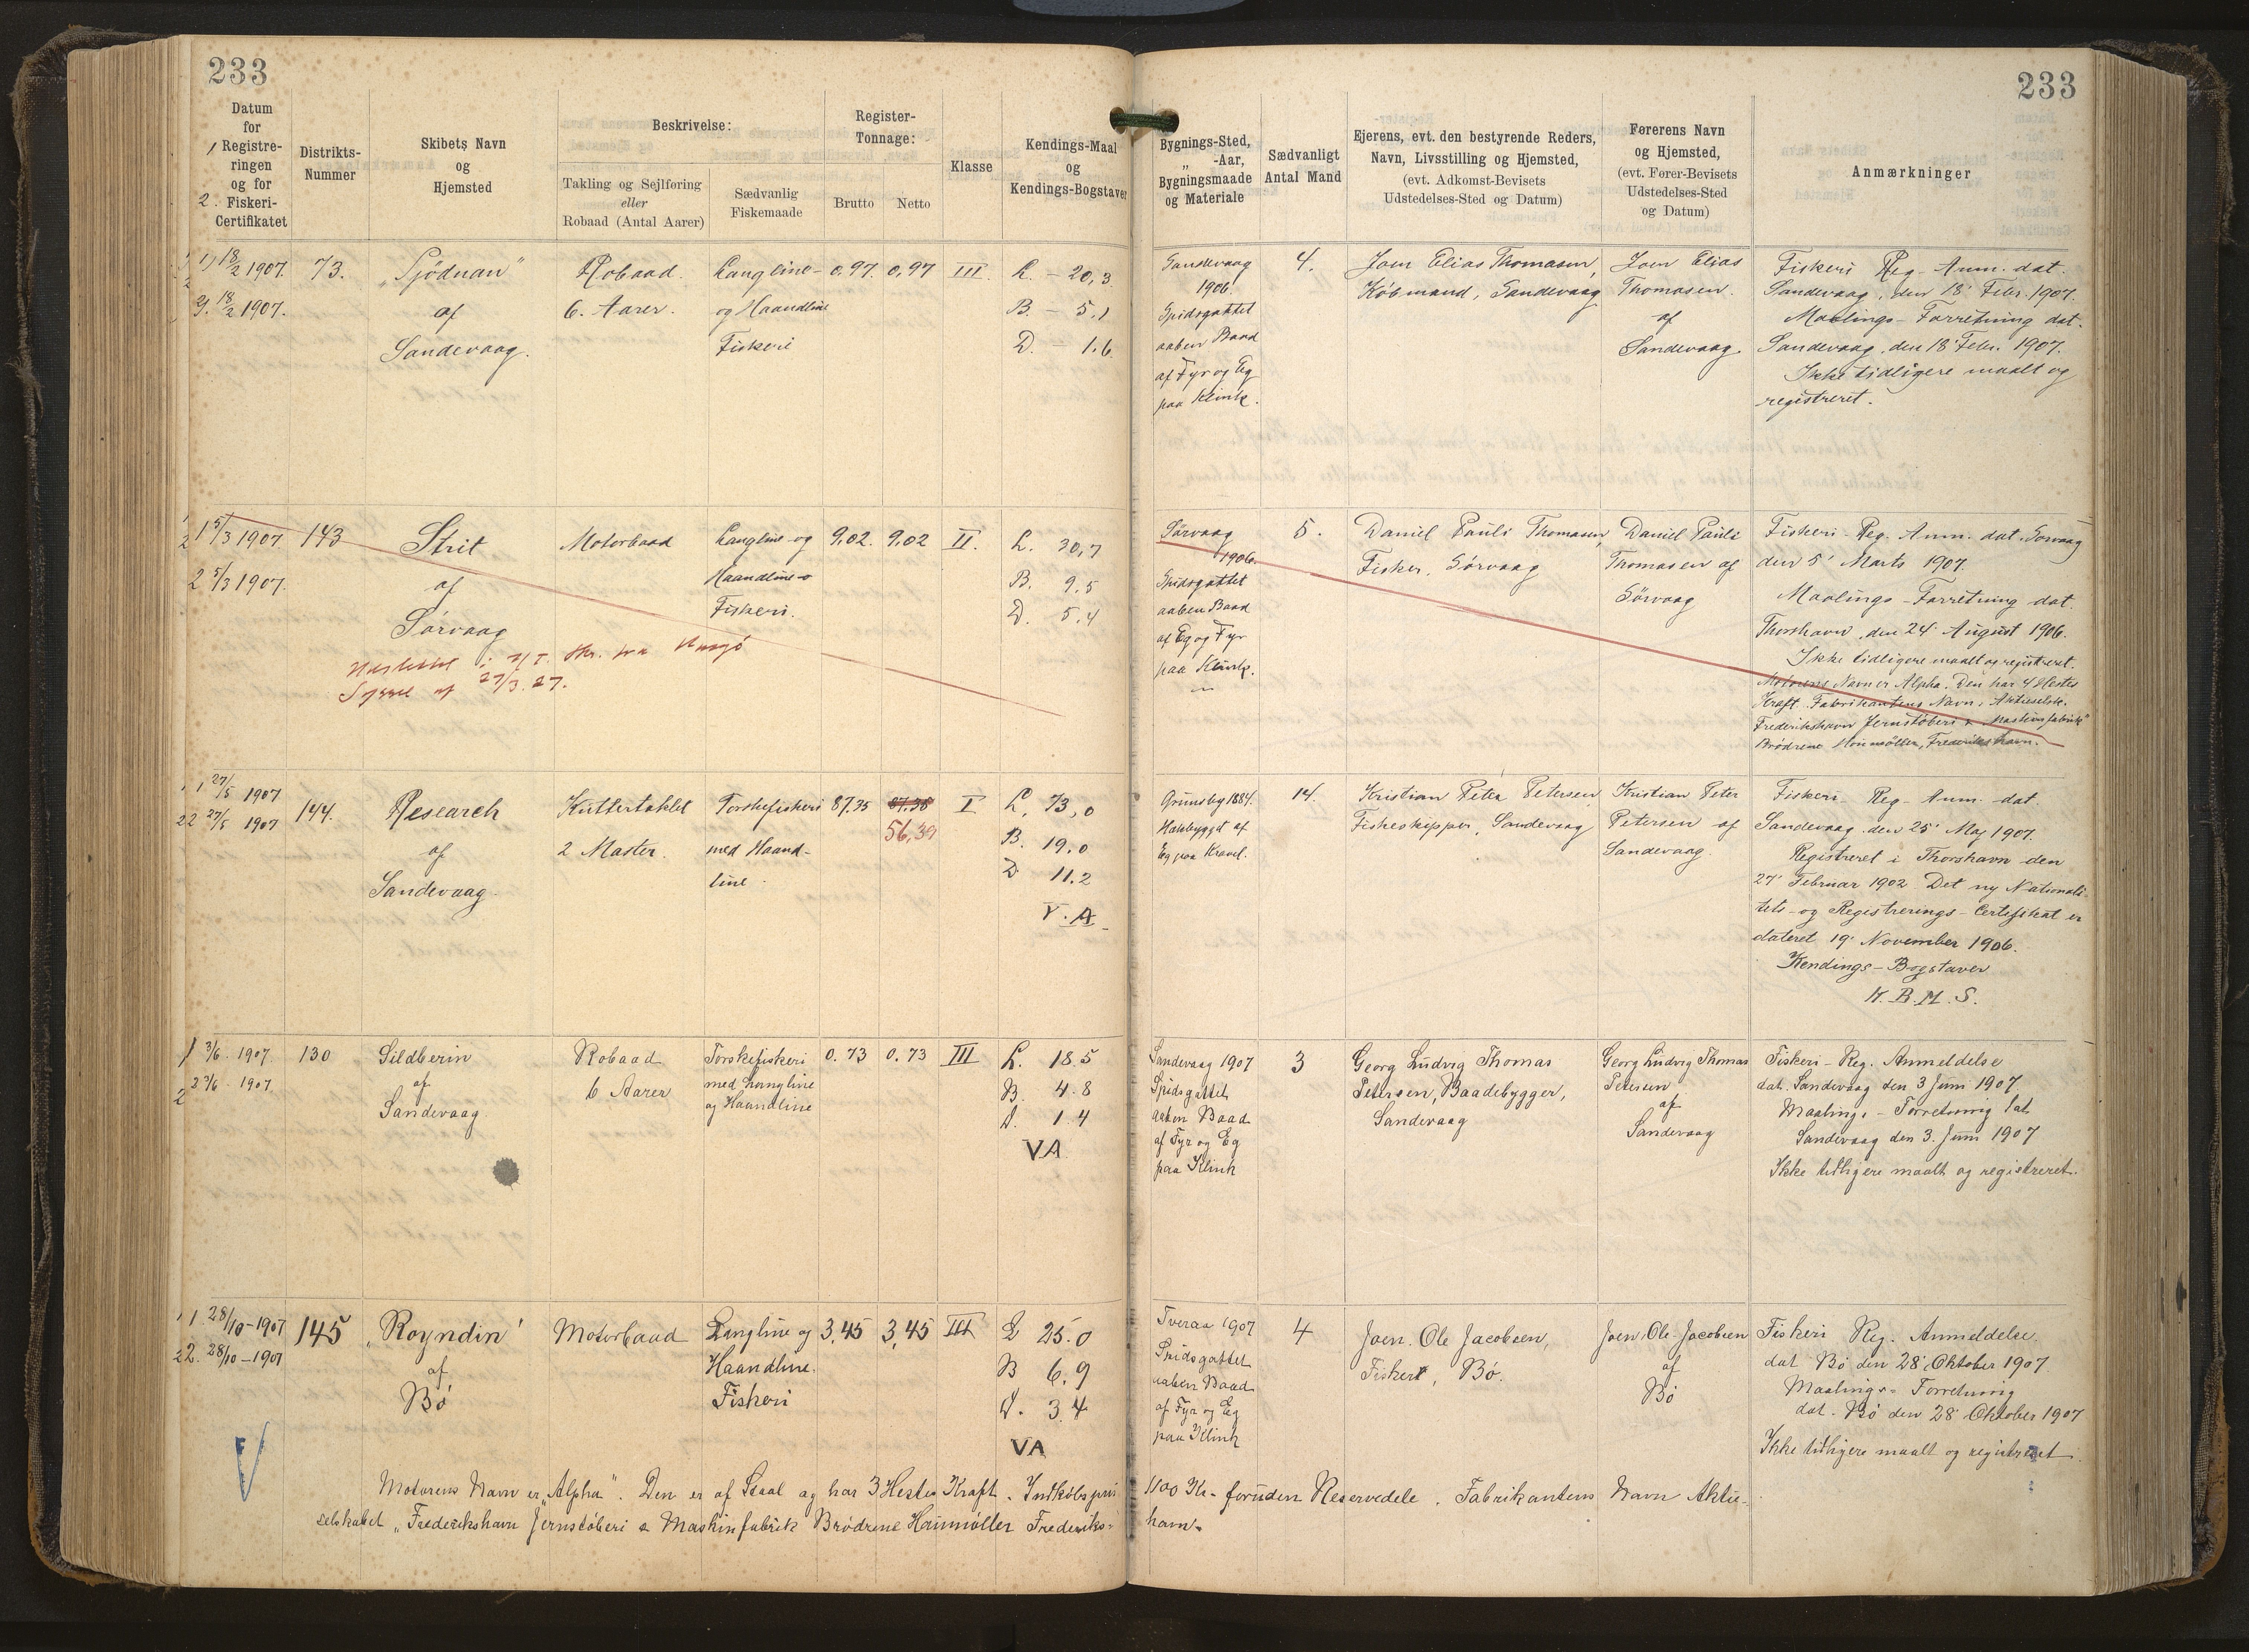 233
233
Datum
for
1 Registre-
ringen
og for
2. Fiskeri-
Certifikatet
Distrikts-
Nummer
Skibets Navn
og
Hjemsted
Beskrivelse:
Takling og Sejlføring
eller
Robaad (Antal Aarer)
Sædvanlig
Fiskemaade
Register-
Tonnage:
Brutto
Netto
Klasse
Kendings-Maal
og
Kendings-Bogstaver
Bygnings-Sted,
„ -Aar,
Bygningsmaade
og Materiale
Sædvanligt
Antal Mand
Ejerens, evt. den bestyrende Reders,
Navn, Livsstilling og Hjemsted,
(evt. Adkomst-Bevisets
Udstedelses-Sted og Datum)
Førerens Navn
og Hjemsted,
(evt. Fører-Bevisets
Udstedelses-Sted
og Datum)
Anmærkninger
1) 18/2 1907.
2). 18/2 1907.
73.
„Sjöduan"
af
Sandevaag.
Robaad.
6. Aarer.
Langline-
og Haandline
Fiskeri
0,97.
0,97
III.
L. - 20,3
B. - 5,1
D. - 1.6
Sandevaag
1906.
Spidsgattet
aaben Baad
af Fyr og Eg
paa Klink.
4.
Joen Elias Thomasen,
Købmand, Sandevaag
Joen Elias
Thomasen.
af
Sandevaag.
Fiskeri Reg. Anm. dat.
Sandevaag, den 18' Febr. 1907.
Maalings-Forretning dat.
Sandevaag, den 18' Febr. 1907.
Ikke tidligere maalt og
registreret.
1 5/3 1907.
2 5/3 1907.
143
Strit
af
Sørvaag
Motorbaad
Langline-og
Haandline-
Fiskeri.
9,02.
9,02
II.
L. 30,7
B. 9,5
D. 5,4
Sørvaag
1906.
Spidsgattet
aaben Baad
af Eg og Fyr
paa Klink.
5.
Daniel Pauli Thomasen,
Fisker, Sörvaag
Daniel Pauli
Thomasen af
Sörvaag
Fiskeri-Reg. Anm. dat. Sørvaag
den 5' Marts 1907.
Maalings-Forretning dat.
Thorshavn, den 24' August 1906.
Ikke tidligere maalt og registreret.
Motorens Navn er Alpha. Den har 4 Hestes
Kraft. Fabrikantens Navn: Aktieselsk.
Frederikshavn Jernstøberi & Maskinfabrik"
Brødrene Houmøller, Frederikshavn.
Syssel af 27/3.27.
1 27/5 1907
2 27/5 1907
144.
Research
af
Sandevaag.
Kuttertaklet
2 Master.
Torskefiskeri
med Haand-
line.
87.35
87.35
56,39
I
L. 73,0
B. 19,0
D 11.2
V.A.
Grimsby 1884.
Eg paa Kravel.
14.
Kristian Peter Petersen,
Fiskeskipper, Sandevaag
Kristian Peter
Petersen af
Sandevaag
Fiskeri-Reg-Anm. dat.
Sandevaag, den 25' Maj 1907.
Registreret i Thorshavn den
27' Februar 1902. Det ny Nationali-
tets- og Registrerings-Certifikat er
dateret 19' November 1906.
Kendings-Bogstaver
N.B.M.S.
1 3/6. 1907
2 3/6. 1907.
130
Sildberin
af
Sandevaag.
Robaad
6 Aarer
Torskefiskeri
med Langline
og Haandline
0.73
0.73
III
L. 18.5
B. 4.8
D. 1.4
VA
Sandevaag 1907
Spidsgattet
aaben Baad
af Fyr og Eg
paa Klink
3
Georg Ludvig Thomas
Petersen, Baadebygger,
Sandevaag
Georg Ludvig Thomas
Petersen
af
Sandevaag
Fiskeri-Reg. Anmeldelse
dat. Sandevaag den 3 Juni 1907.
Maalings-Forretning dat
Sandevaag den 3. Juni 1907
Ikke tidligere maalt og registreret.
1. 28/10-1907
2. 28/10-1907
145
„Royndin'
af
Bö
Motorbaad
Langline og
Haandline.
Fiskeri
3,45
3,45
III
L 25.0
B 6.9
D. 3.4
VA
Tveraa 1907
Spidsgattet
aaben Baad
af Fyr og Eg
paa Klink
4
Joen. Ole Jacobsen,
Fisker, Bö.
Joen. Ole. Jacobsen
af
Bö
Fiskeri Reg. Anmeldelse.
dat Bö den 28' Oktober 1907.
Maalings-Forretning
dat. Bö den 28' Oktober 1907
Ikke tidligere maalt og registreret
V
Motorens Navn er „Alpha". Den er af Staal og har 3 Hestes Kraft. Indkøbspris 1100 Kr. foruden Reservedele. Fabrikantens Navn Aktie-
selskabet „Frederikshavn Jernstöberi & Maskinfabrik Brödrene Houmøller Frederiks-
havn.